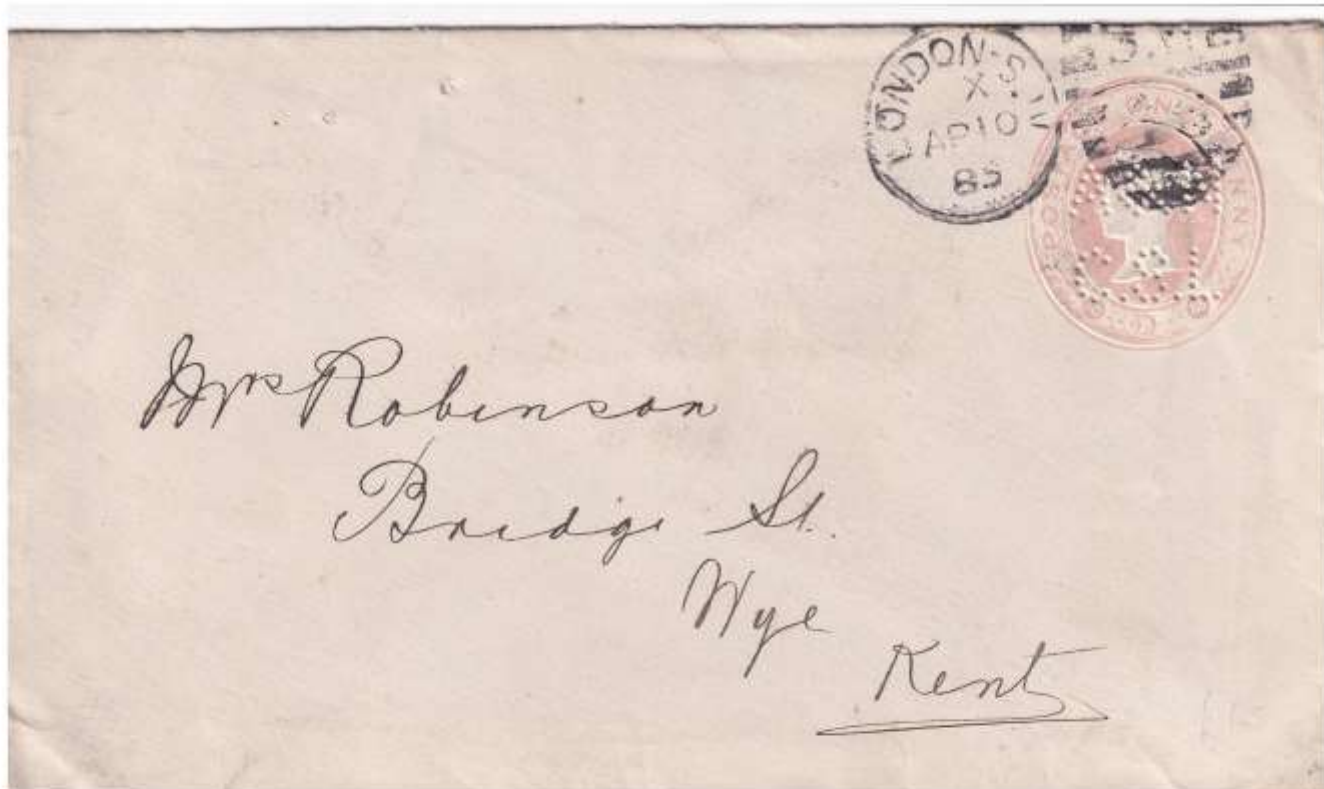 LONDON·S.W
X
AP 10
85
S.W
POSTAGE ONE PENNY
Mrs Robinson
Bridge St.
Wye
Kent